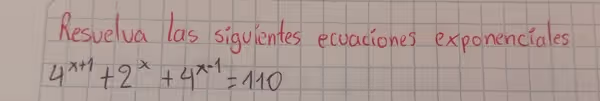 Resuelva las siguientes ecuaciones exponenciales
4^{x+1} + 2^x + 4^{x-1} = 110